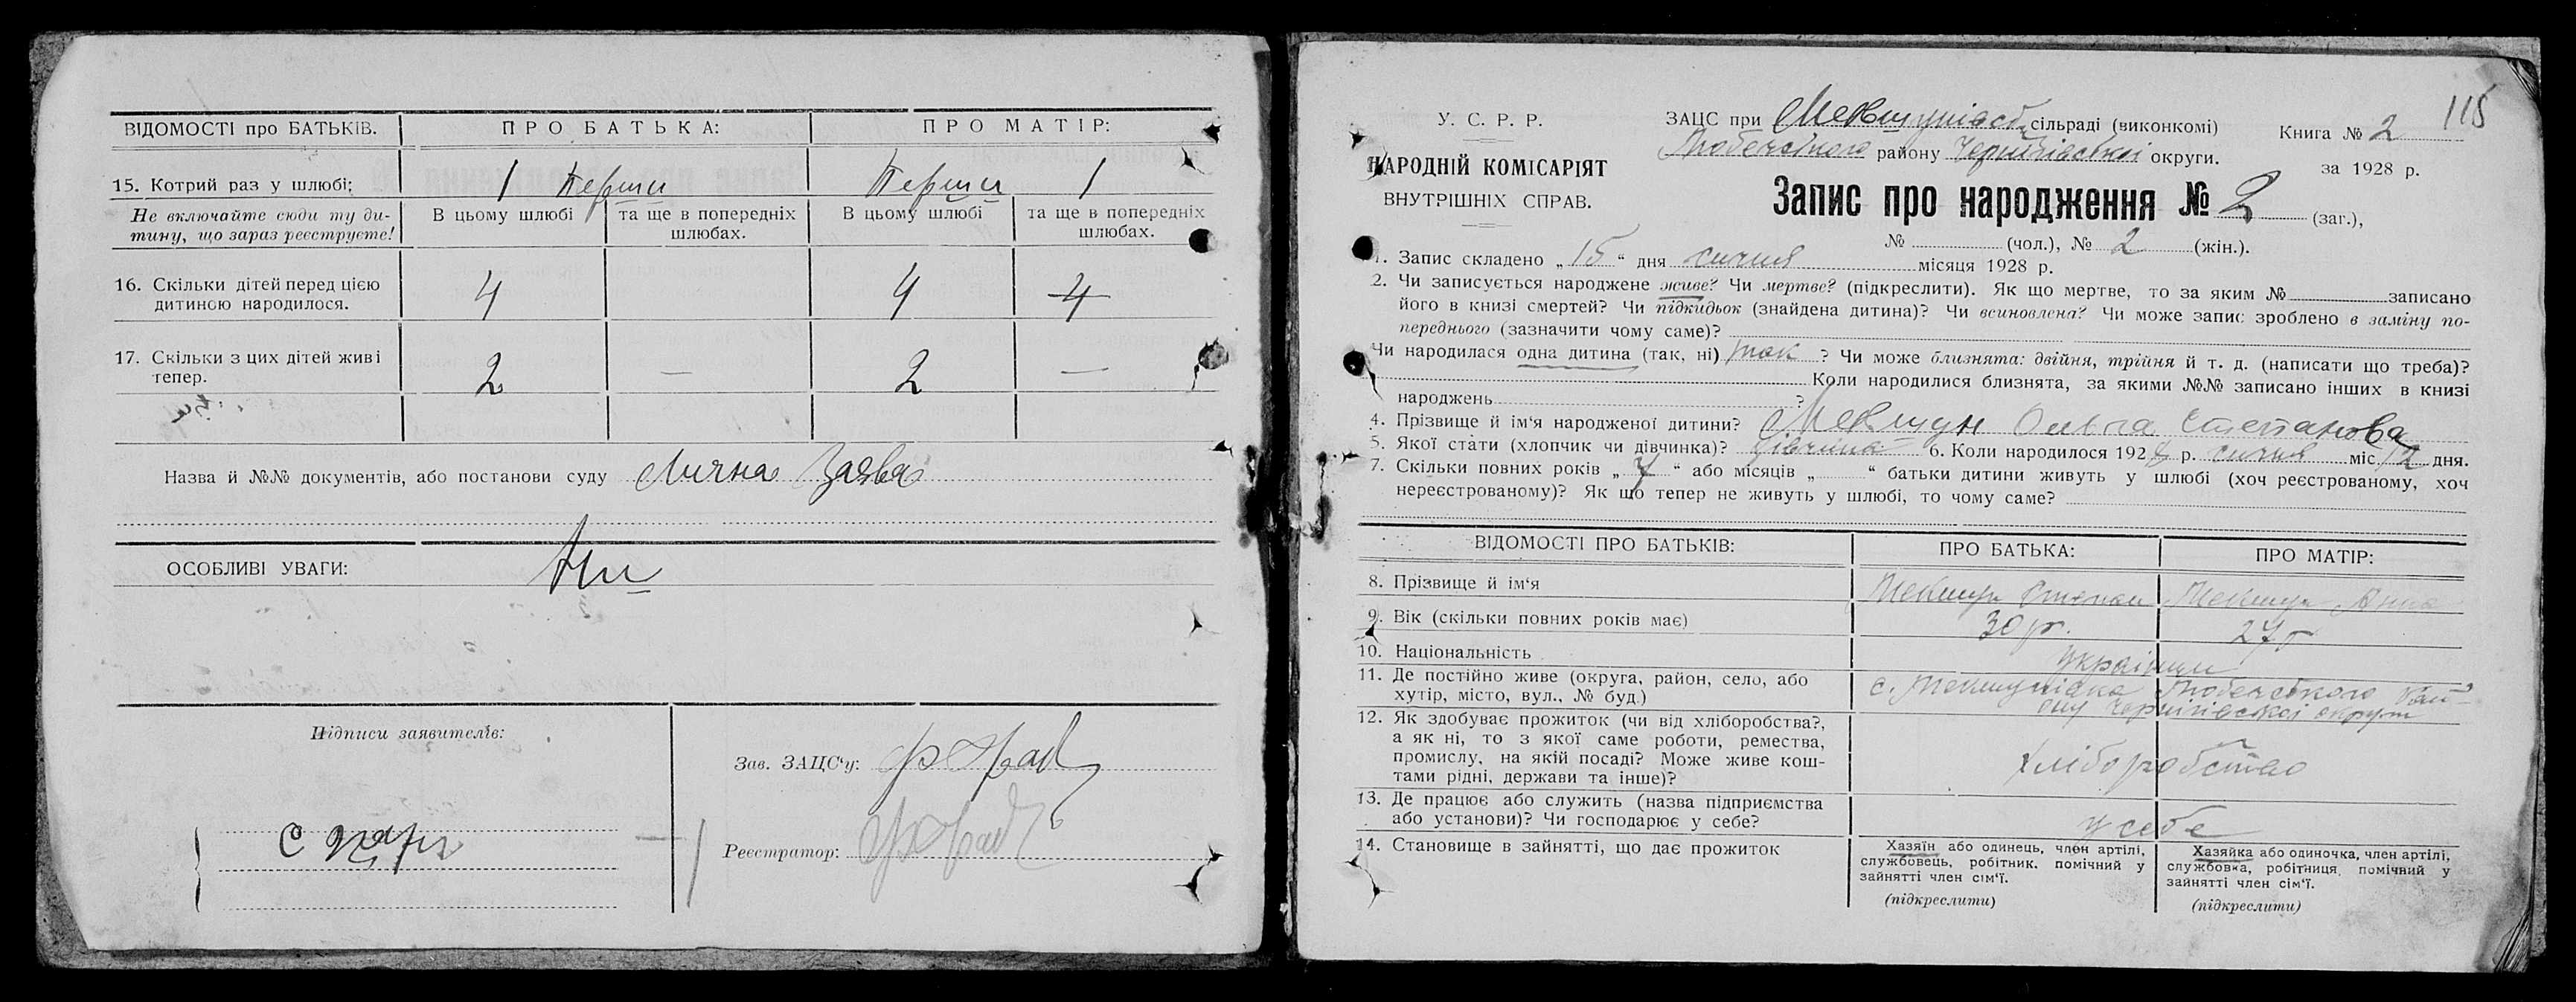 ВІДОМОСТІ про БАТЬКІВ. ПРО БАТЬКА: ПРО МАТІР:
15. Котрий раз у шлюбі: 1 Перши Перши 1
Не включайте сюди ту ди-
тину, що зараз реєструєте!
В цьому шлюбі
та ще в попередніх
шлюбах.
В цьому шлюбі
та ще в попередніх
шлюбах.
16. Скільки дітей перед цією
дитиною народилося.
4 4 4
17. Скільки з цих дітей живі
тепер.
2 — 2 —
Назва й №№ документів, або постанови суду Лична Заява
ОСОБЛИВІ УВАГИ:
Підписи заявителів:
Зав. ЗАЦС'у:
Реєстратор:
115
У. С. Р. Р.
НАРОДНІЙ КОМІСАРІЯТ
ВНУТРІШНІХ СПРАВ.
ЗАЦС при Мекшунівські сільраді (виконкомі)
Любечського району Чернігівської округи.
Книга № 2
за 1928 р.
Запис про народження № 2 (заг.),
№ (чол.), № 2 (жін.).
1. Запис складено „15“ дня сичня місяця 1928 р.
2. Чи записується народжене живе? Чи мертве? (підкреслити). Як що мертве, то за яким № записано
його в книзі смертей? Чи підкидьок (знайдена дитина)? Чи всиновлена? Чи може запис зроблено в заміну по-
переднього (зазначити чому саме)?
Чи народилася одна дитина (так, ні) так ? Чи може близнята: двійня, трійня й т. д. (написати що треба)?
Коли народилися близнята, за якими №№ записано інших в книзі
народжень ?
4. Прізвище й ім'я народженої дитини? Мекшун Ольга Степанова
5. Якої стати (хлопчик чи дівчинка)? дівчина 6. Коли народилося 1928 р. сичня міс. 12 дня.
7. Скільки повних років „7“ або місяців „ “ батьки дитини живуть у шлюбі (хоч реєстрованому, хоч
нереєстрованому)? Як що тепер не живуть у шлюбі, то чому саме?
ВІДОМОСТІ ПРО БАТЬКІВ: ПРО БАТЬКА: ПРО МАТІР:
8. Прізвище й ім'я Мекшун Степан Мекшун Анна
9. Вік (скільки повних років має) 30 р. 27 р
10. Національність українци
11. Де постійно живе (округа, район, село, або
хутір, місто, вул., № буд.)
с. Мекшунівка Любечського рай-
ону Чернігівської округи
12. Як здобуває прожиток (чи від хліборобства?,
а як ні, то з якої саме роботи, ремества,
промислу, на якій посаді? Може живе кош-
тами рідні, держави та інше)?
хліборобство
13. Де працює або служить (назва підприємства
або установи)? Чи господарює у себе?
у себе
14. Становище в зайнятті, що дає прожиток
Хазяїн або одинець, член артілі,
службовець, робітник. помічний у
зайнятті член сім'ї.
(підкреслити)
Хазяйка або одиночка, член артілі,
службовка, робітниця, помічний у
зайнятті член сім'ї.
(підкреслити)